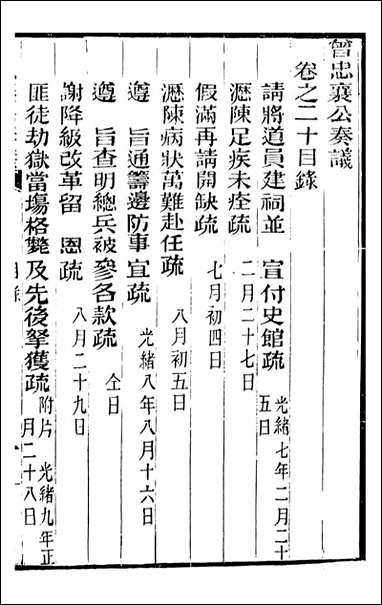 曾忠襄公奏議
卷之二十目錄
請將道員建祠並 宣付史館疏 光緒七年二月二十五日
瀝陳足疾未痊疏 二月二十七日
假滿再請開缺疏 七月初四日
瀝陳病狀萬難赴任疏 八月初五日
遵 旨通籌邊防事宜疏 光緒八年八月十六日
遵 旨查明總兵被參各款疏 仝日
謝降級改革留 恩疏 八月二十九日
匪徒劫獄當場格斃及先後拏獲疏 附片 光緒九年正月二十八日